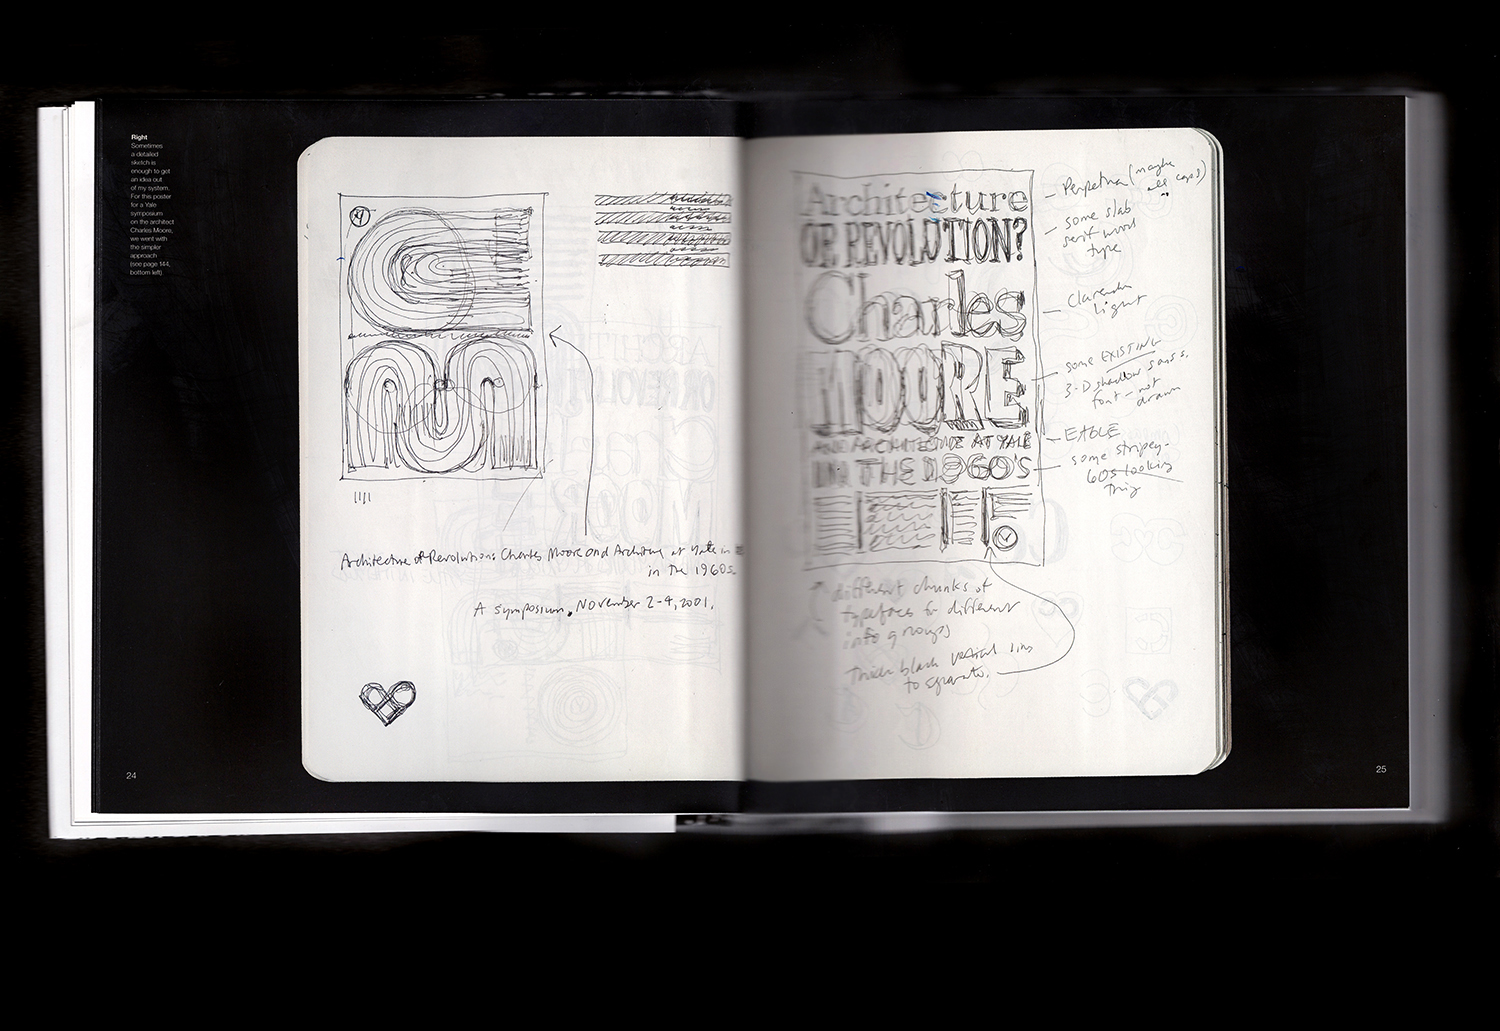 Right
Sometimes
a detailed
sketch is
enough to get
an idea out
of my system.
For this poster
for a Yale
symposium
on the architect
Charles Moore,
we went with
the simpler
approach
(see page 144,
bottom left).
24
Architecture or Revolution: Charles Moore and Architecture at Yale in
in the 1960s
A symposium, November 2-4, 2001.
Architecture
OR REVOLUTION?
Charles
MOORE
AND ARCHITECTURE AT YALE
IN THE 1960'S
Perpetua (maybe
all caps)
some slab
serif wood
type
Clarendon
Light
some EXISTING
3-D shadow sans s.
font - not
drawn
EAGLE
some stripey-
60s looking
thing
different chunks of
typefaces for different
info groups
thick black vertical lines
to separate.
25